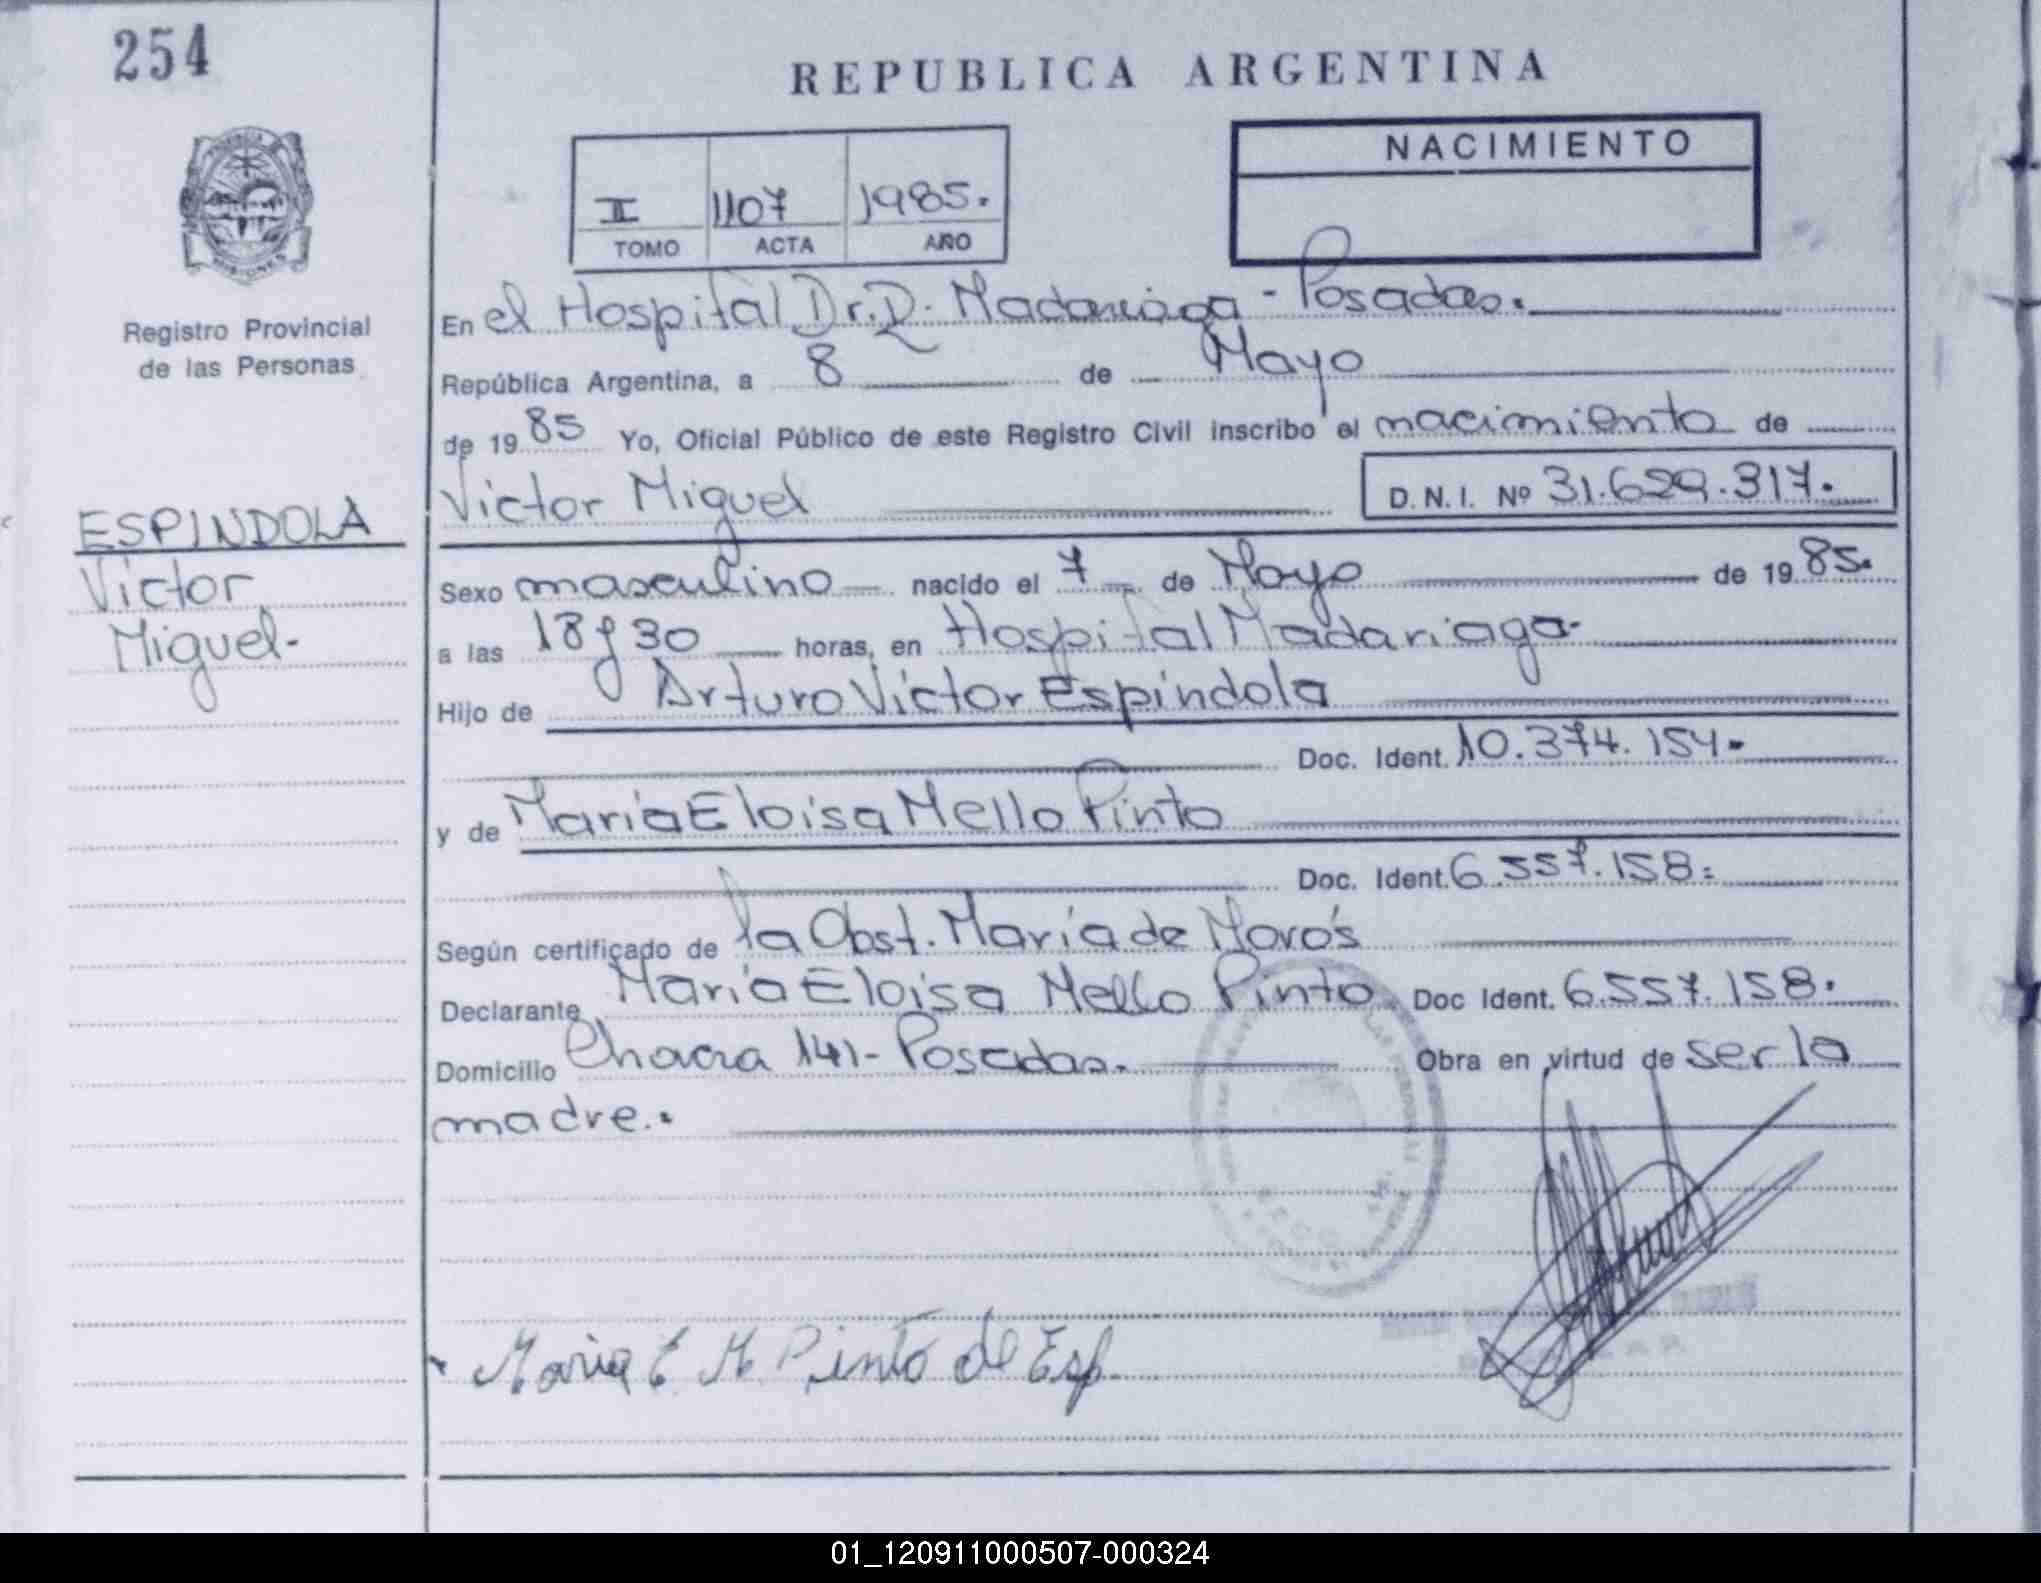 254
REPUBLICA ARGENTINA
NACIMIENTO
II 1107 1985.
TOMO ACTA AÑO
PROVINCIA DE MISIONES
Registro Provincial
de las Personas
ESPINDOLA
Victor
Miguel-
En el Hospital Dr. R. Madariaga - Posadas.
República Argentina, a 8 de Mayo
de 1985 Yo, Oficial Público de este Registro Civil inscribo el nacimiento de
Victor Miguel D.N.I. Nº 31.629.317.
Sexo masculino nacido el 7 de Mayo de 1985.
a las 18 y 30 horas, en Hospital Madariaga-
Hijo de Arturo Victor Espindola
Doc. Ident. 10.374.154.
y de María Eloisa Mello Pinto
Doc. Ident. 6.557.158.
Según certificado de la Obst. María de
Declarante María Eloisa Mello Pinto Doc Ident. 6.557.158.
Domicilio Chacra 141- Posadas. Obra en virtud de ser la
madre.
Maria E. M. Pinto de Esp.
01_120911000507-000324